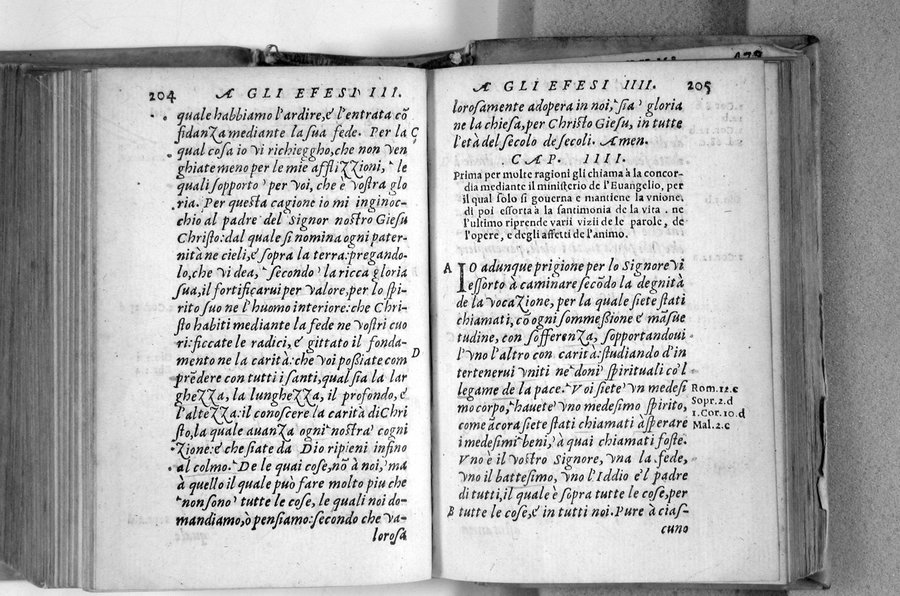 204 Æ GLI EFESI III.
quale habbiamo l'ardire, e l'entrata cō
fidanza mediante la sua fede. Per la C
qual cosa io vi richieggho, che non ven
ghiate meno per le mie afflizzioni, le
quali sopporto per voi, che è vostra glo
ria. Per questa cagione io mi inginoc-
chio al padre del Signor nostro Giesu
Christo: dal quale si nomina ogni pater-
nità ne cieli, e sopra la terra: pregando-
lo, che vi dea, secondo la ricca gloria
sua, il fortificarui per valore, per lo spi-
rito suo ne l'huomo interiore: che Chri-
sto habiti mediante la fede ne vostri cuo
ri: ficcate le radici, e gittato il fonda-
mento ne la carità: che voi possiate com D
prēdere con tutti i santi, qual sia la lar
ghezza, la lunghezza, il profondo, e
l'altezza: il conoscere la carità di Chri
sto, la quale auanza ogni nostra cogni
zione: e che siate da Dio ripieni infino
al colmo. De le quai cose, nō à noi, ma
à quello il quale può fare molto piu che
non sono tutte le cose, le quali noi do-
mandiamo, ò pensiamo: secondo che va-
lorosa
Æ GLI EFESI IIII. 205
lorosamente adopera in noi, sia gloria
ne la chiesa, per Christo Giesu, in tutte
l'età del secolo de secoli. Amen.
CAP. IIII.
Prima per molte ragioni gli chiama à la concor-
dia mediante il ministerio de l'Euangelio, per
il qual solo si gouerna e mantiene la vnione.
di poi essorta à la santimonia de la vita. ne
l'ultimo riprende varii vizii de le parole, de
l'opere, e degli affetti de l'animo.
A IO adunque prigione per lo Signore vi
essorto à caminare secōdo la degnità
de la vocazione, per la quale siete stati
chiamati, cō ogni sommessione e māsue
tudine, con sofferenza, sopportandoui
l'vno l'altro con carità: studiando d'in
tertenerui vniti ne doni spirituali co'l
legame de la pace. Voi siete vn medesi Rom. 12. c
mo corpo, hauete vno medesimo spirito, Sopr. 2. d
come ācora siete stati chiamati à sperare 1. Cor. 10. d
i medesimi beni, à quai chiamati foste. Mal. 2. c
Vno è il vostro Signore, vna la fede,
vno il battesimo, vno l'Iddio e'l padre
di tutti, il quale è sopra tutte le cose, per
B tutte le cose, e in tutti noi. Pure à cias-
cuno